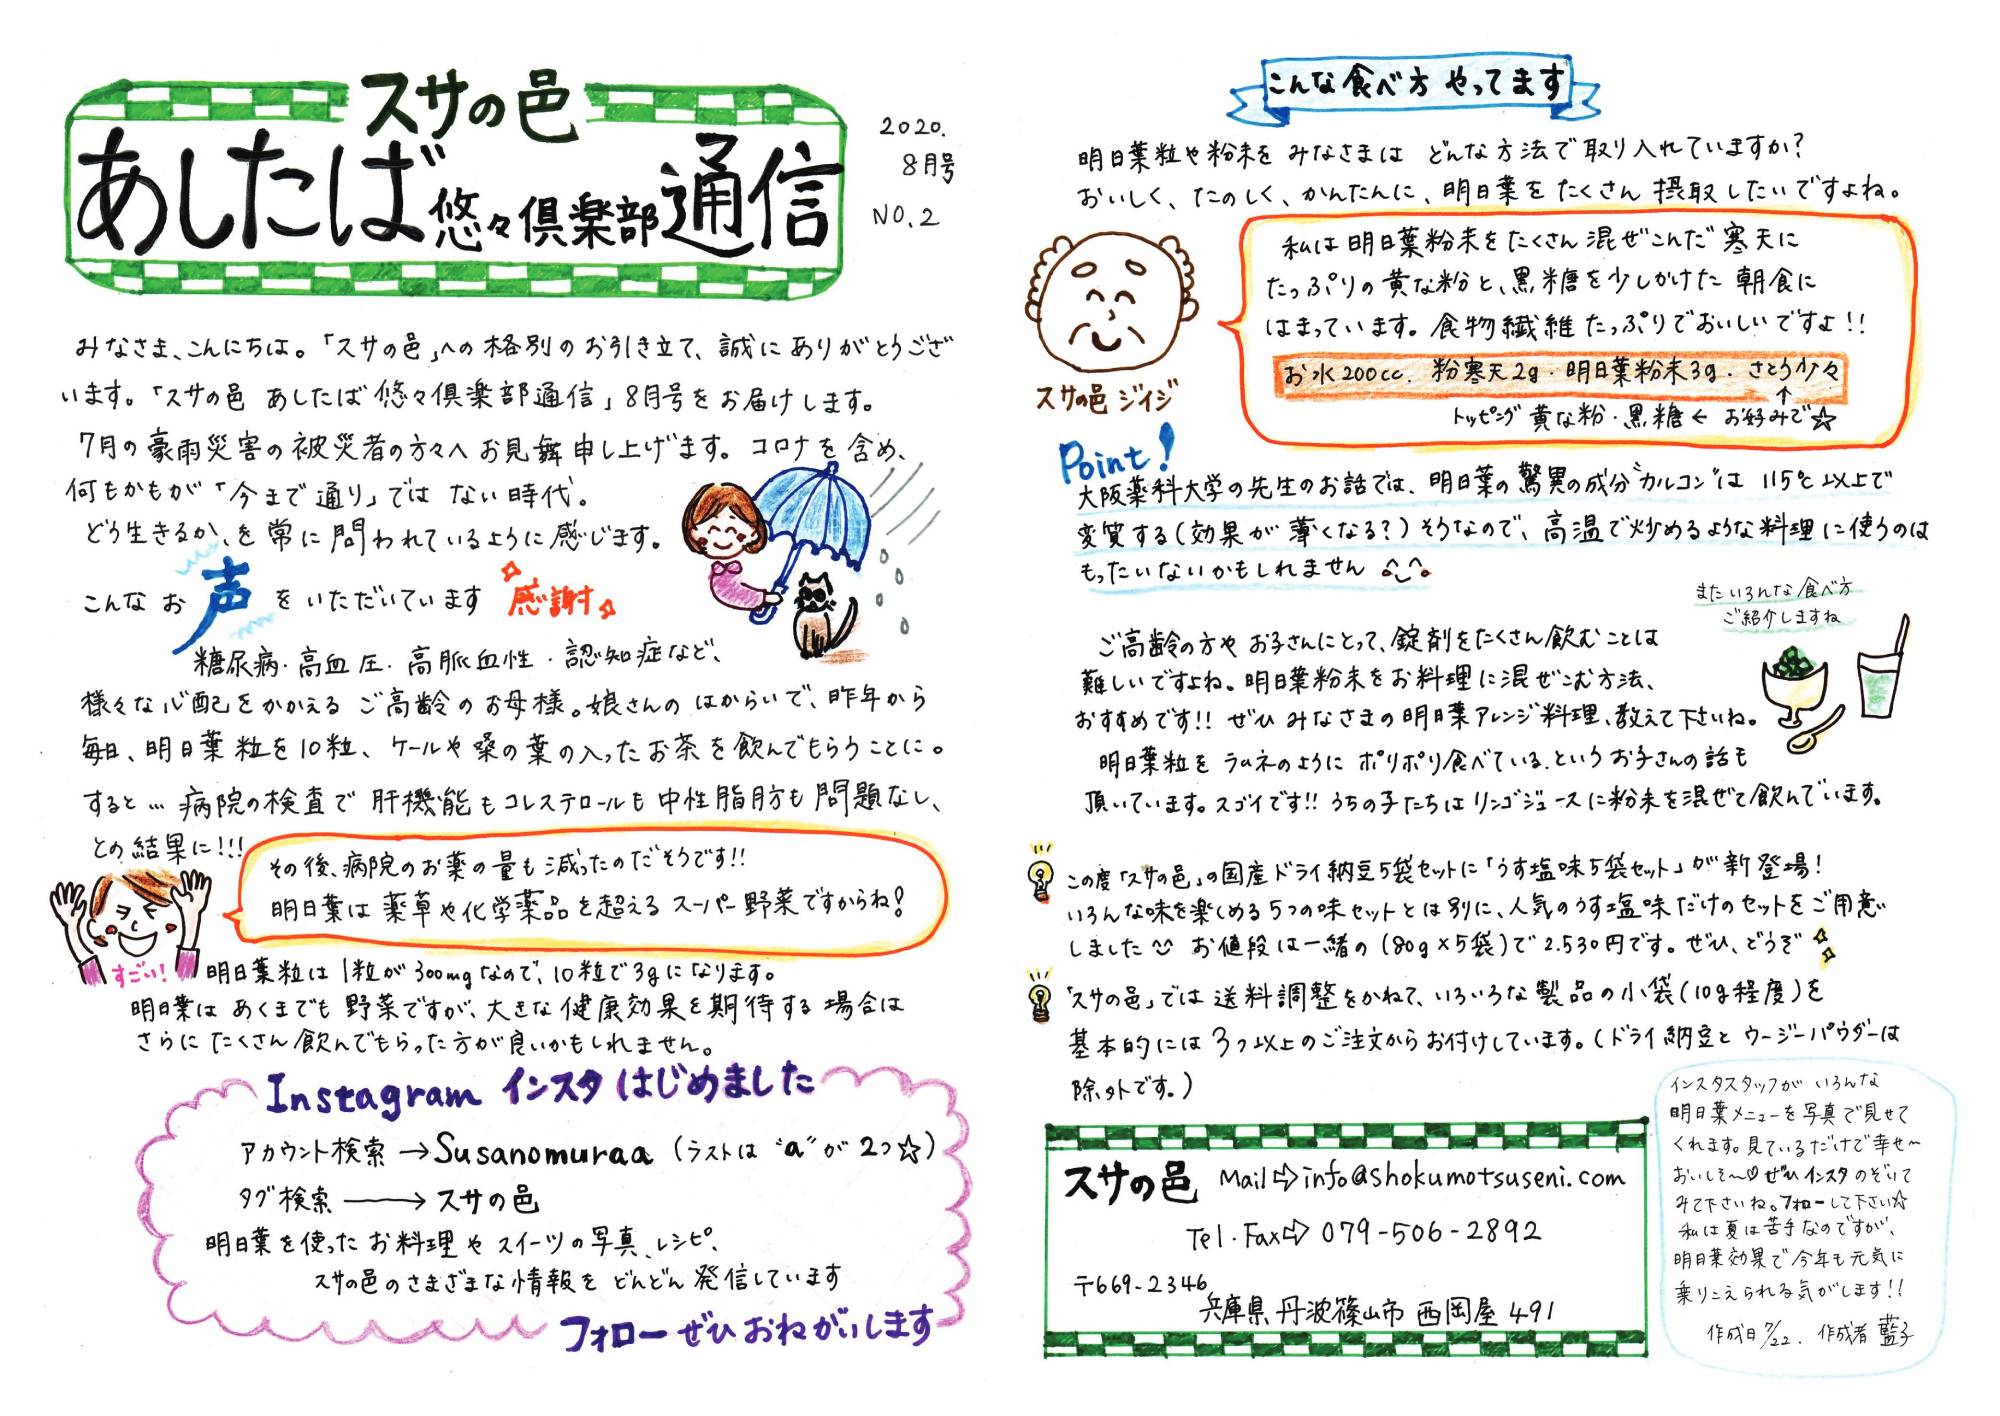 スサの邑
あしたば悠々倶楽部通信
2020.
8月号
NO.2
みなさま、こんにちは。「スサの邑」への格別のお引き立て、誠にありがとうござ
います。「スサの邑 あしたば悠々倶楽部通信」8月号をお届けします。
7月の豪雨災害の被災者の方々へお見舞申し上げます。コロナを含め、
何もかもが「今まで通り」ではない時代。
どう生きるか、を常に問われているように感じます。
こんなお声をいただいています 感謝
糖尿病・高血圧・高脈血性・認知症など、
様々な心配をかかえるご高齢のお母様。娘さんのはからいで、昨年から
毎日、明日葉粒を10粒、ケールや桑の葉の入ったお茶を飲んでもらうことに。
すると…病院の検査で肝機能もコレステロールも中性脂肪も問題なし、
との結果に!!!
その後、病院のお薬の量も減ったのだそうです!!
明日葉は薬草や化学薬品を超えるスーパー野菜ですからね!
すごい!
明日葉粒は1粒が300mgなので、10粒で3gになります。
明日葉はあくまでも野菜ですが、大きな健康効果を期待する場合は
さらにたくさん飲んでもらった方が良いかもしれません。
Instagram インスタはじめました
アカウント検索→Susanomuraa (ラストは"a"が2つ☆)
タグ検索→スサの邑
明日葉を使ったお料理やスイーツの写真、レシピ、
スサの邑のさまざまな情報をどんどん発信しています
フォローぜひおねがいします
こんな食べ方やってます
明日葉粒や粉末をみなさまはどんな方法で取り入れていますか?
おいしく、たのしく、かんたんに、明日葉をたくさん摂取したいですよね。
私は明日葉粉末をたくさん混ぜこんだ寒天に
たっぷりの黄な粉と、黒糖を少しかけた朝食に
はまっています。食物繊維たっぷりでおいしいですよ!!
お水200cc.粉寒天2g・明日葉粉末3g・さとう少々
↑
トッピング 黄な粉・黒糖 ← お好みで☆
スサの邑 ジイジ
Point!
大阪薬科大学の先生のお話では、明日葉の驚異の成分"カルコン"は115℃以上で
変質する(効果が薄くなる?)そうなので、高温で炒めるような料理に使うのは
もったいないかもしれません
またいろんな食べ方
ご紹介しますね
ご高齢の方やお子さんにとって、錠剤をたくさん飲むことは
難しいですよね。明日葉粉末をお料理に混ぜこむ方法、
おすすめです!! ぜひみなさまの明日葉アレンジ料理、教えて下さいね。
明日葉粒をラムネのようにポリポリ食べている.というお子さんの話も
頂いています。スゴイです!! うちの子たちはリンゴジュースに粉末を混ぜて飲んでいます。
この度「スサの邑」の国産ドライ納豆5袋セットに「うす塩味5袋セット」が新登場!
いろんな味を楽しめる5つの味セットとは別に、人気のうす塩味だけのセットをご用意
しました お値段は一緒の(80g×5袋)で2.530円です。ぜひ、どうぞ
「スサの邑」では送料調整をかねて、いろいろな製品の小袋(10g程度)を
基本的には3つ以上のご注文からお付けしています。(ドライ納豆とウージーパウダーは
除外です。)
スサの邑 Mail⇨info@shokumotsuseni.com
Tel.Fax⇨079-506-2892
〒669-2346
兵庫県丹波篠山市西岡屋491
インスタスタッフがいろんな
明日葉メニューを写真で見せて
くれます。見ているだけで幸せ〜
おいしそ〜♡ぜひインスタのぞいて
みて下さいね。フォローして下さい☆
私は夏は苦手なのですが、
明日葉効果で今年も元気に
乗りこえられる気がします!!
作成日7/22. 作成者 藍子